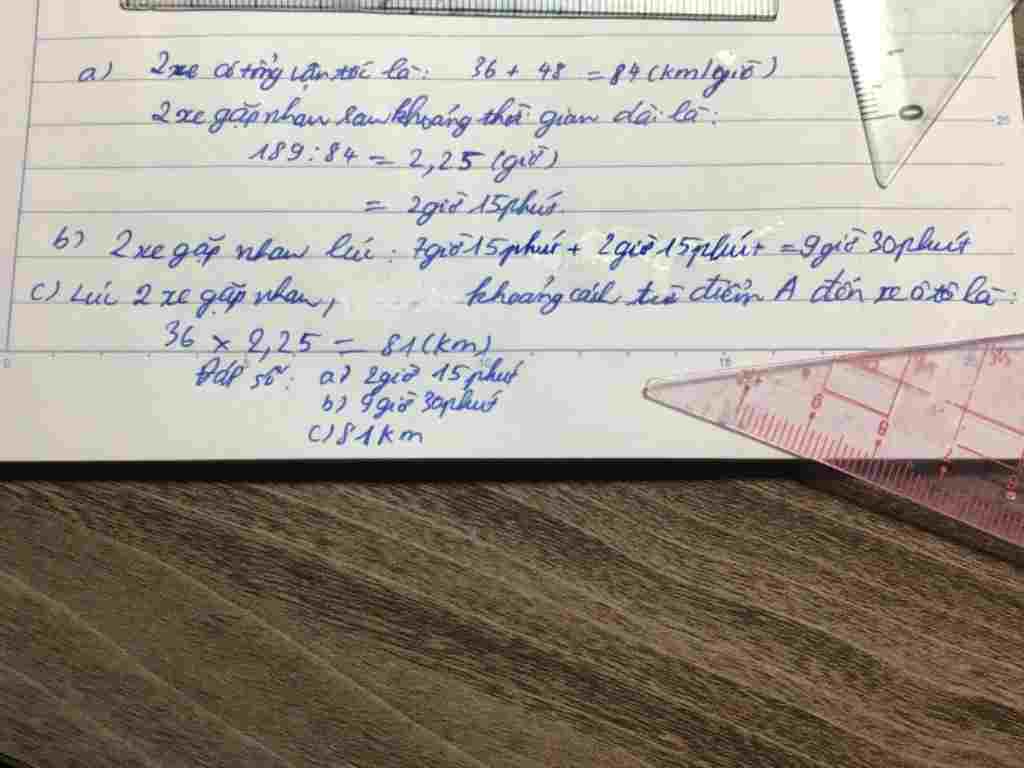 a) 2xe có tổng vận tốc là: 36 + 48 = 84 (km/giờ)
2xe gặp nhau sau khoảng thời gian dài là:
189 : 84 = 2,25 (giờ)
= 2giờ 15phút.
b) 2xe gặp nhau lúc: 7giờ 15phút + 2giờ 15phút = 9giờ 30phút
c) Lúc 2 xe gặp nhau, khoảng cách từ điểm A đến xe ô tô là:
36 × 2,25 = 81 (km)
Đáp số: a) 2giờ 15 phút
b) 9giờ 30phút
c) 81km